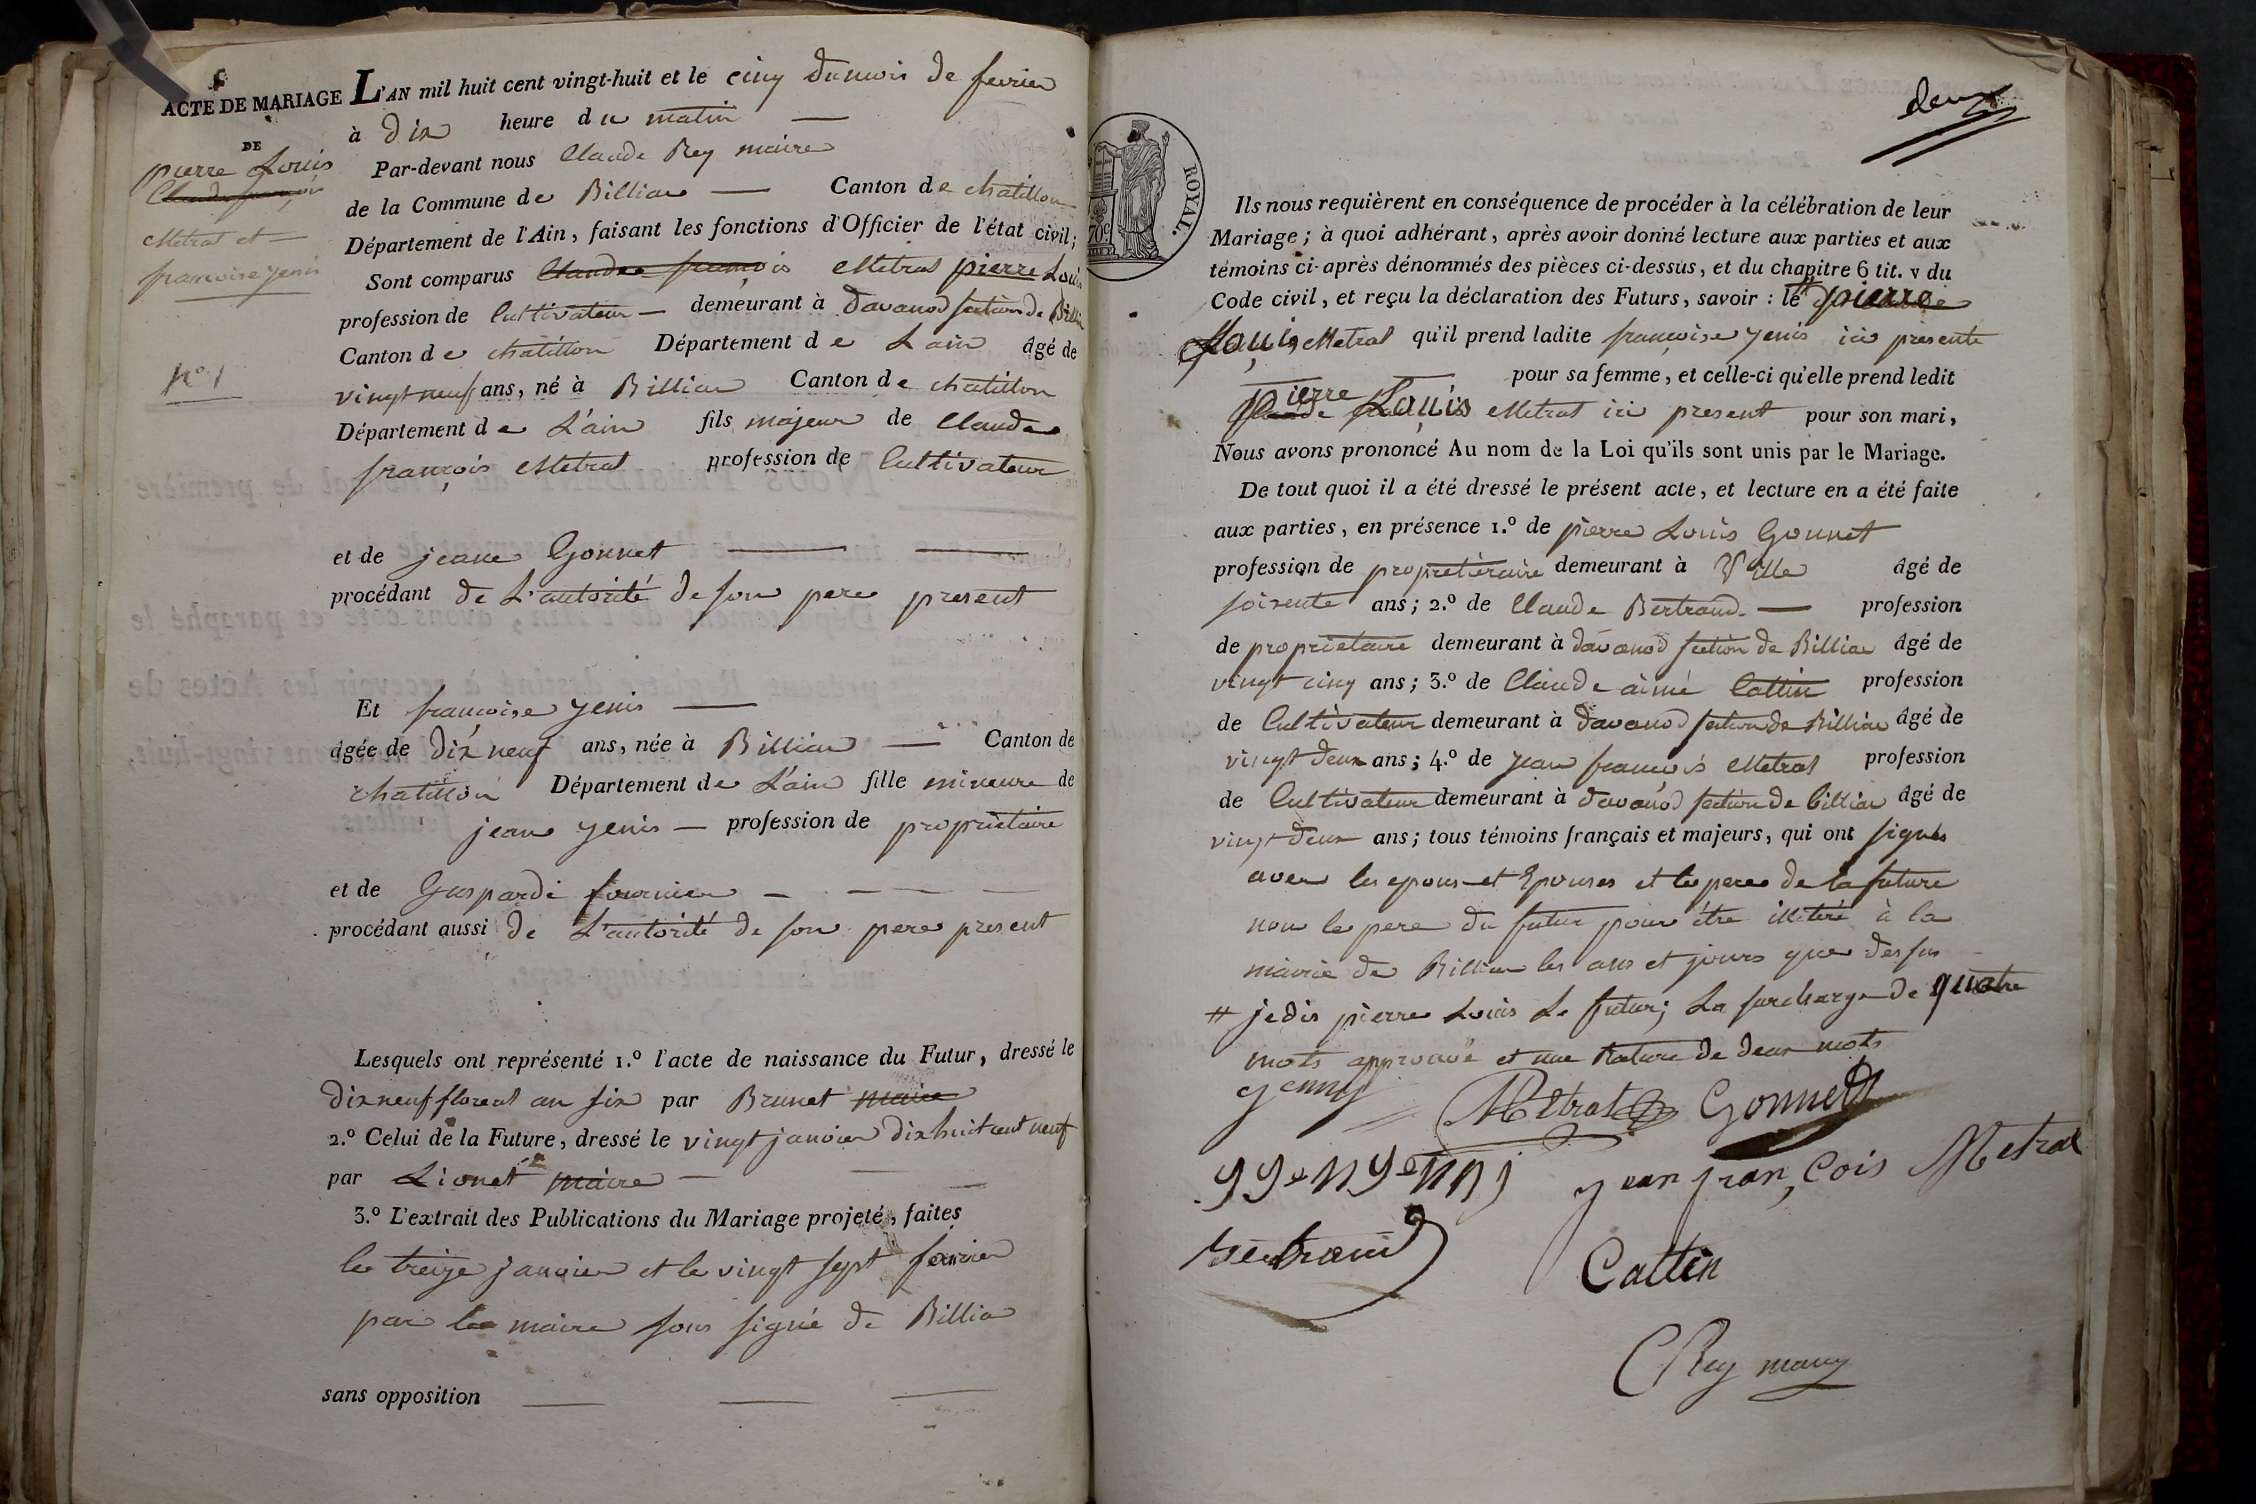 ACTE DE MARIAGE
DE
pierre Louis
Claude françois
Metral et
francoise jenis
N.o 1
L'AN mil huit cent vingt-huit et le cinq du mois de fevrier
à dix heure du matin
Par-devant nous Claude Rey maire
de la Commune de Billiac Canton de chatillon
Département de l'Ain, faisant les fonctions d'Officier de l'état civil;
Sont comparus Claude françois Metral pierre Louis
profession de Cultivateur demeurant à davanod section de Billia
Canton de chatillon Département de L'ain âgé de
vingt neuf ans, né à Billiac Canton de chatillon
Département de L'ain fils majeur de Claude
françois Metral profession de Cultivateur
et de jeane Gonnet
procédant de L'autorité de son pere present
Et francoise jenis
âgée de dix neuf ans, née à Billiac Canton de
chatillon Département de L'ain fille mineure de
jean jenis profession de proprietaire
et de Gasparde fournier
procédant aussi de L'autorité de son pere present
Lesquels ont représenté 1.º l'acte de naissance du Futur, dressé le
dixneuf floreal an six par Brunet maire
2.º Celui de la Future, dressé le vingt janvier dixhuit cent neuf
par Lionet maire
3.º L'extrait des Publications du Mariage projeté, faites
le treize janvier et le vingt sept
par le maire sous signé de Billia
sans opposition
deux
ROYAL.
70c
Ils nous requièrent en conséquence de procéder à la célébration de leur
Mariage; à quoi adhérant, après avoir donné lecture aux parties et aux
témoins ci-après dénommés des pièces ci-dessus, et du chapitre 6 tit. v du
Code civil, et reçu la déclaration des Futurs, savoir: le # pierre
Louis Metral qu'il prend ladite françoise jenis ici presente
pour sa femme, et celle-ci qu'elle prend ledit
pierre Louis Metral ici present pour son mari,
Nous avons prononcé Au nom de la Loi qu'ils sont unis par le Mariage.
De tout quoi il a été dressé le présent acte, et lecture en a été faite
aux parties, en présence 1.º de pierre Louis Gonnet
profession de propretiéraire demeurant à Ville âgé de
soixente ans; 2.º de Claude Bertrand profession
de proprietaire demeurant à davanod section de Billiac âgé de
vingt cinq ans; 3.º de Claude aimé Cattin profession
de Cultivateur demeurant à davanod section de Billiac âgé de
vingt deux ans; 4.º de jean françois Metral profession
de Cultivateur demeurant à davanod section de billiac âgé de
vingt deux ans; tous témoins français et majeurs, qui ont signés
avec les epous et Epouses et le pere de la future
non le pere du futur pour être illiteré à la
mairie de Billiac les ans et jours que dessus
# je dis pierre Louis Le futur; La surcharge de quatre
mots approuvé et une Rature de deux mots
jenny Metral Gonnet
jean fran,cois Metral
Bertrand
Cattin
CRey maire